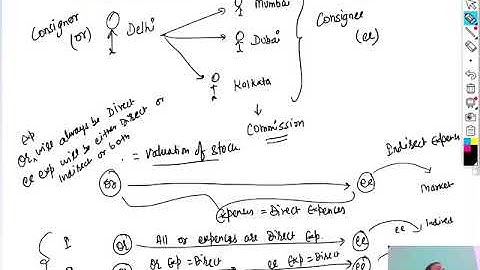 Mumbai
Consignor
(or)
Delhi
Dubai
Kolkata
Consignee
(ee)
Commission
Exp
Or, will always be Direct
ee exp will be either Direct or
Indirect or both
. = Valuation of Stock
Indirect Expenses
or
ee
Market
Expenses = Direct Expenses
I
or
All or expences are Direct Exp.
ee
ee
Indirect
or
Or Exp = Direct
ee Exp = Direct
ee